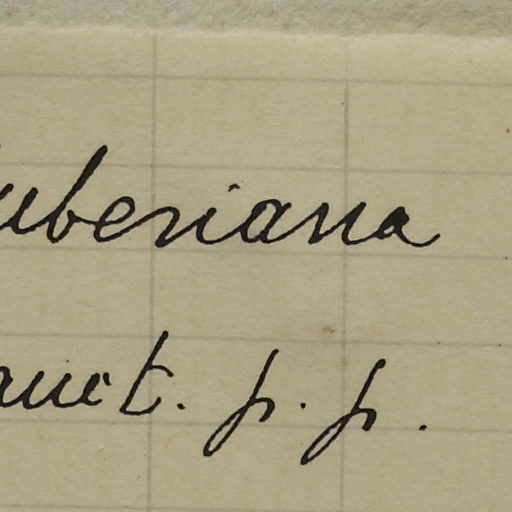 uberiana
auct. p. p.